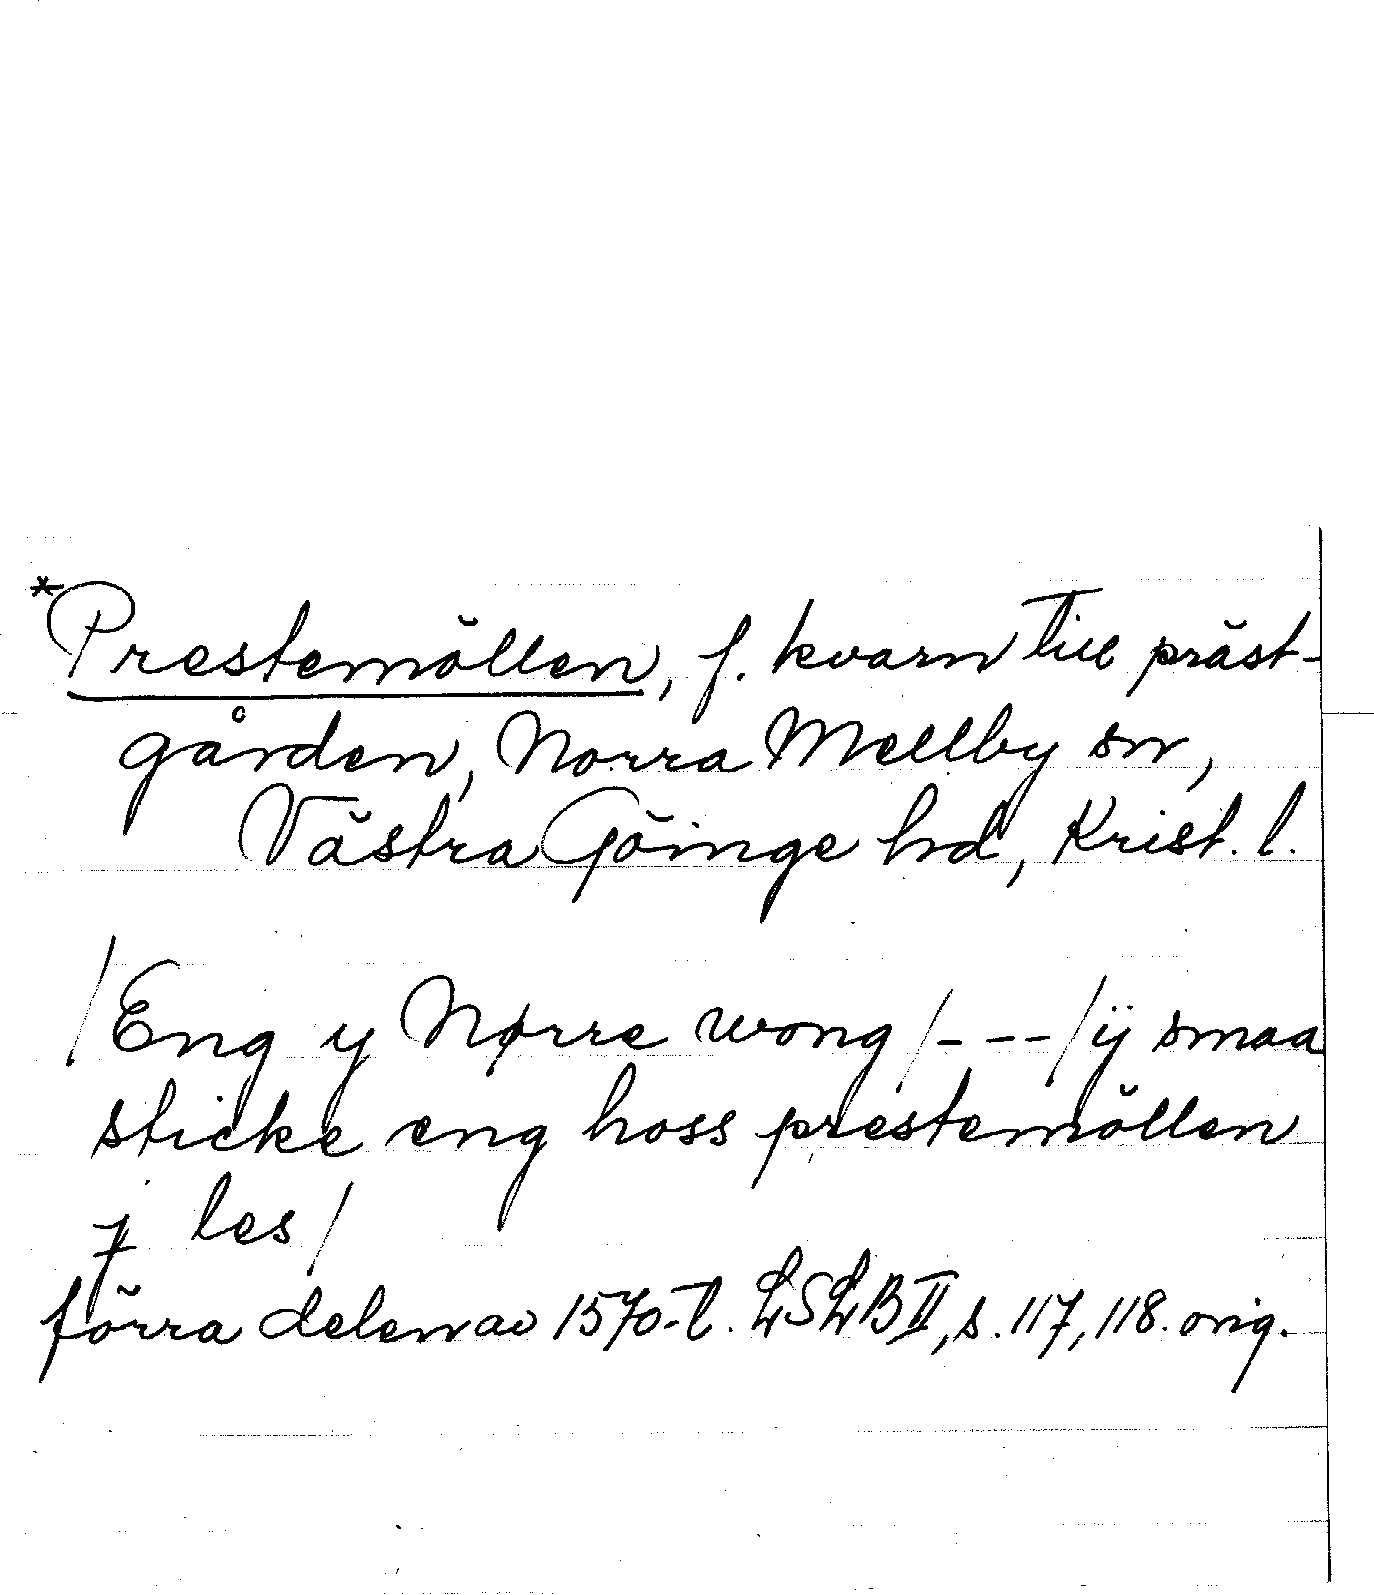 *Prestemöllen, f. kvarn till präst-
gården, Norra Mellby sn,
Västra Göinge hd, Krist. l.
/Eng y Nørre wong /---/ ÿ smaa
sticke eng hoss prestemöllen
j les/
förra delen av 1570-t. LSLB II, s. 117, 118. orig.